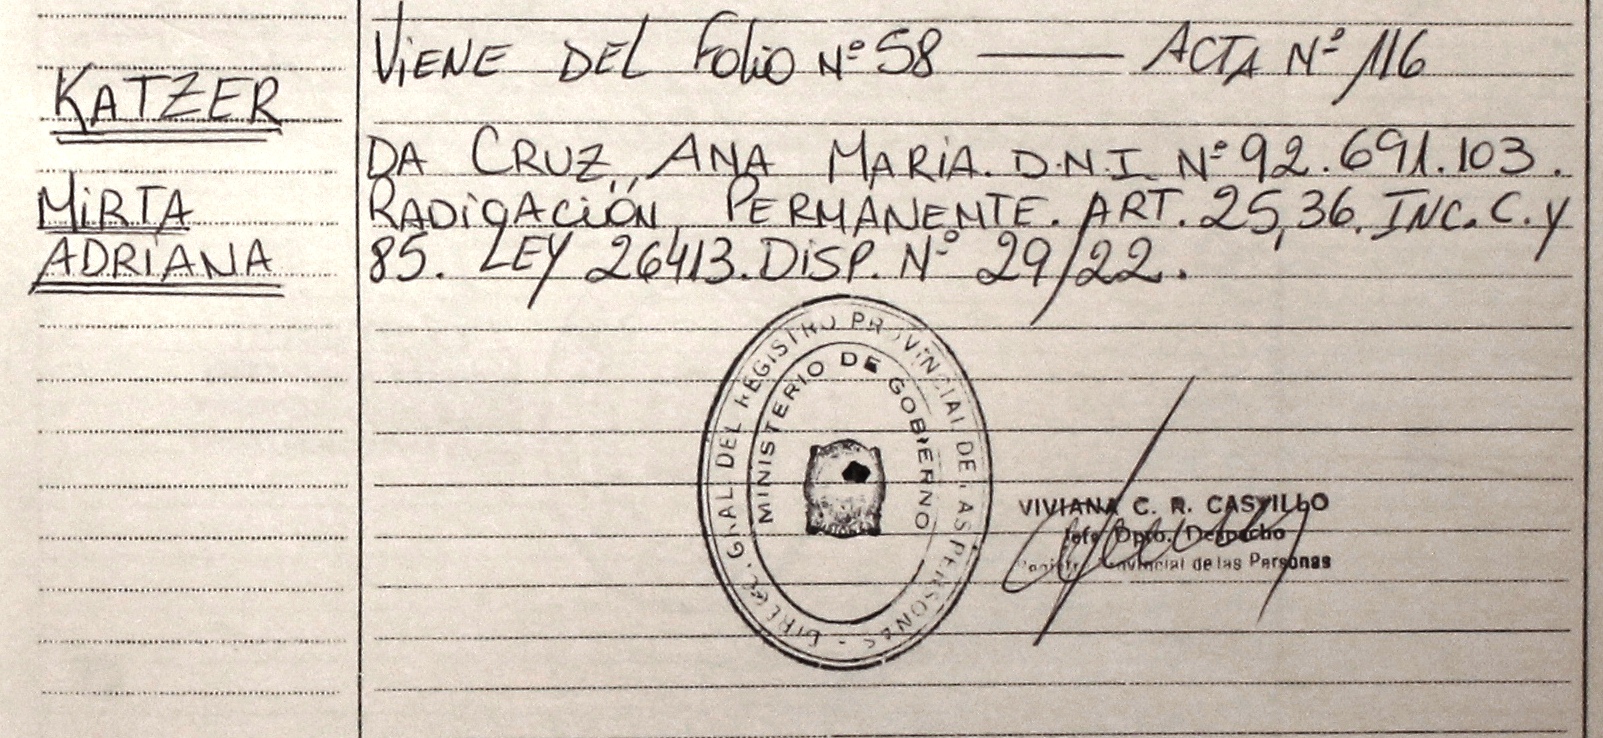 KATZER
MiRTA
ADRIANA
ViENE DEL Folio Nº 58 —— ACTA Nº 116
DA CRUZ,, ANA MARiA. D.N.I. Nº 92.691.103.
RADiCACiÓN PERMANENTE. ART. 25,36. INC. C. y
85. LEY 26413. DiSP. Nº 29/22.
DIREC. GRAL. DEL REGISTRO PROVINCIAL DE LAS PERSONAS -
MINISTERIO DE GOBIERNO
VIVIANA C. R. CASTILLO
Jefe Dpto. Despacho
Registro Provincial de las Personas